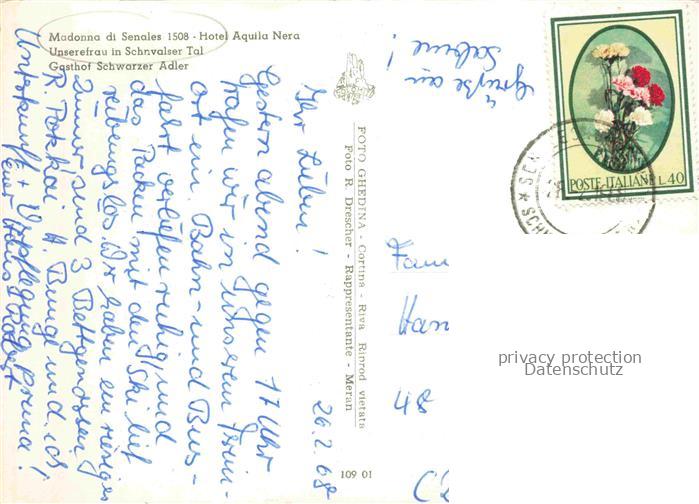 Madonna di Senales 1508 - Hotel Aquila Nera
Unserefrau in Schnvalser Tal
Gasthof Schwarzer Adler
26.2.68
Ihr Lieben!
Gestern abend gegen 17 Uhr
trafen wir in unserem Ferien-
ort ein. Bahn- und Bus-
fahrt verliefen ruhig, und
das Packen mit den Ski lief
reibungslos. Wir haben ein riesiges
Zimmer, sind 3 Bettgenossen,
R. Pokkai, H. Bunge und ich
Unterkunft + Verpflegung prima!
Euer Hans
Grüße an
Sabine!
FOTO GHEDINA - Cortina - Riva Riprod vietata
Foto R. Drescher - Rappresentante - Meran
109 01
POSTE ITALIANE L. 40
Fam
Han
48
privacy protection
Datenschutz